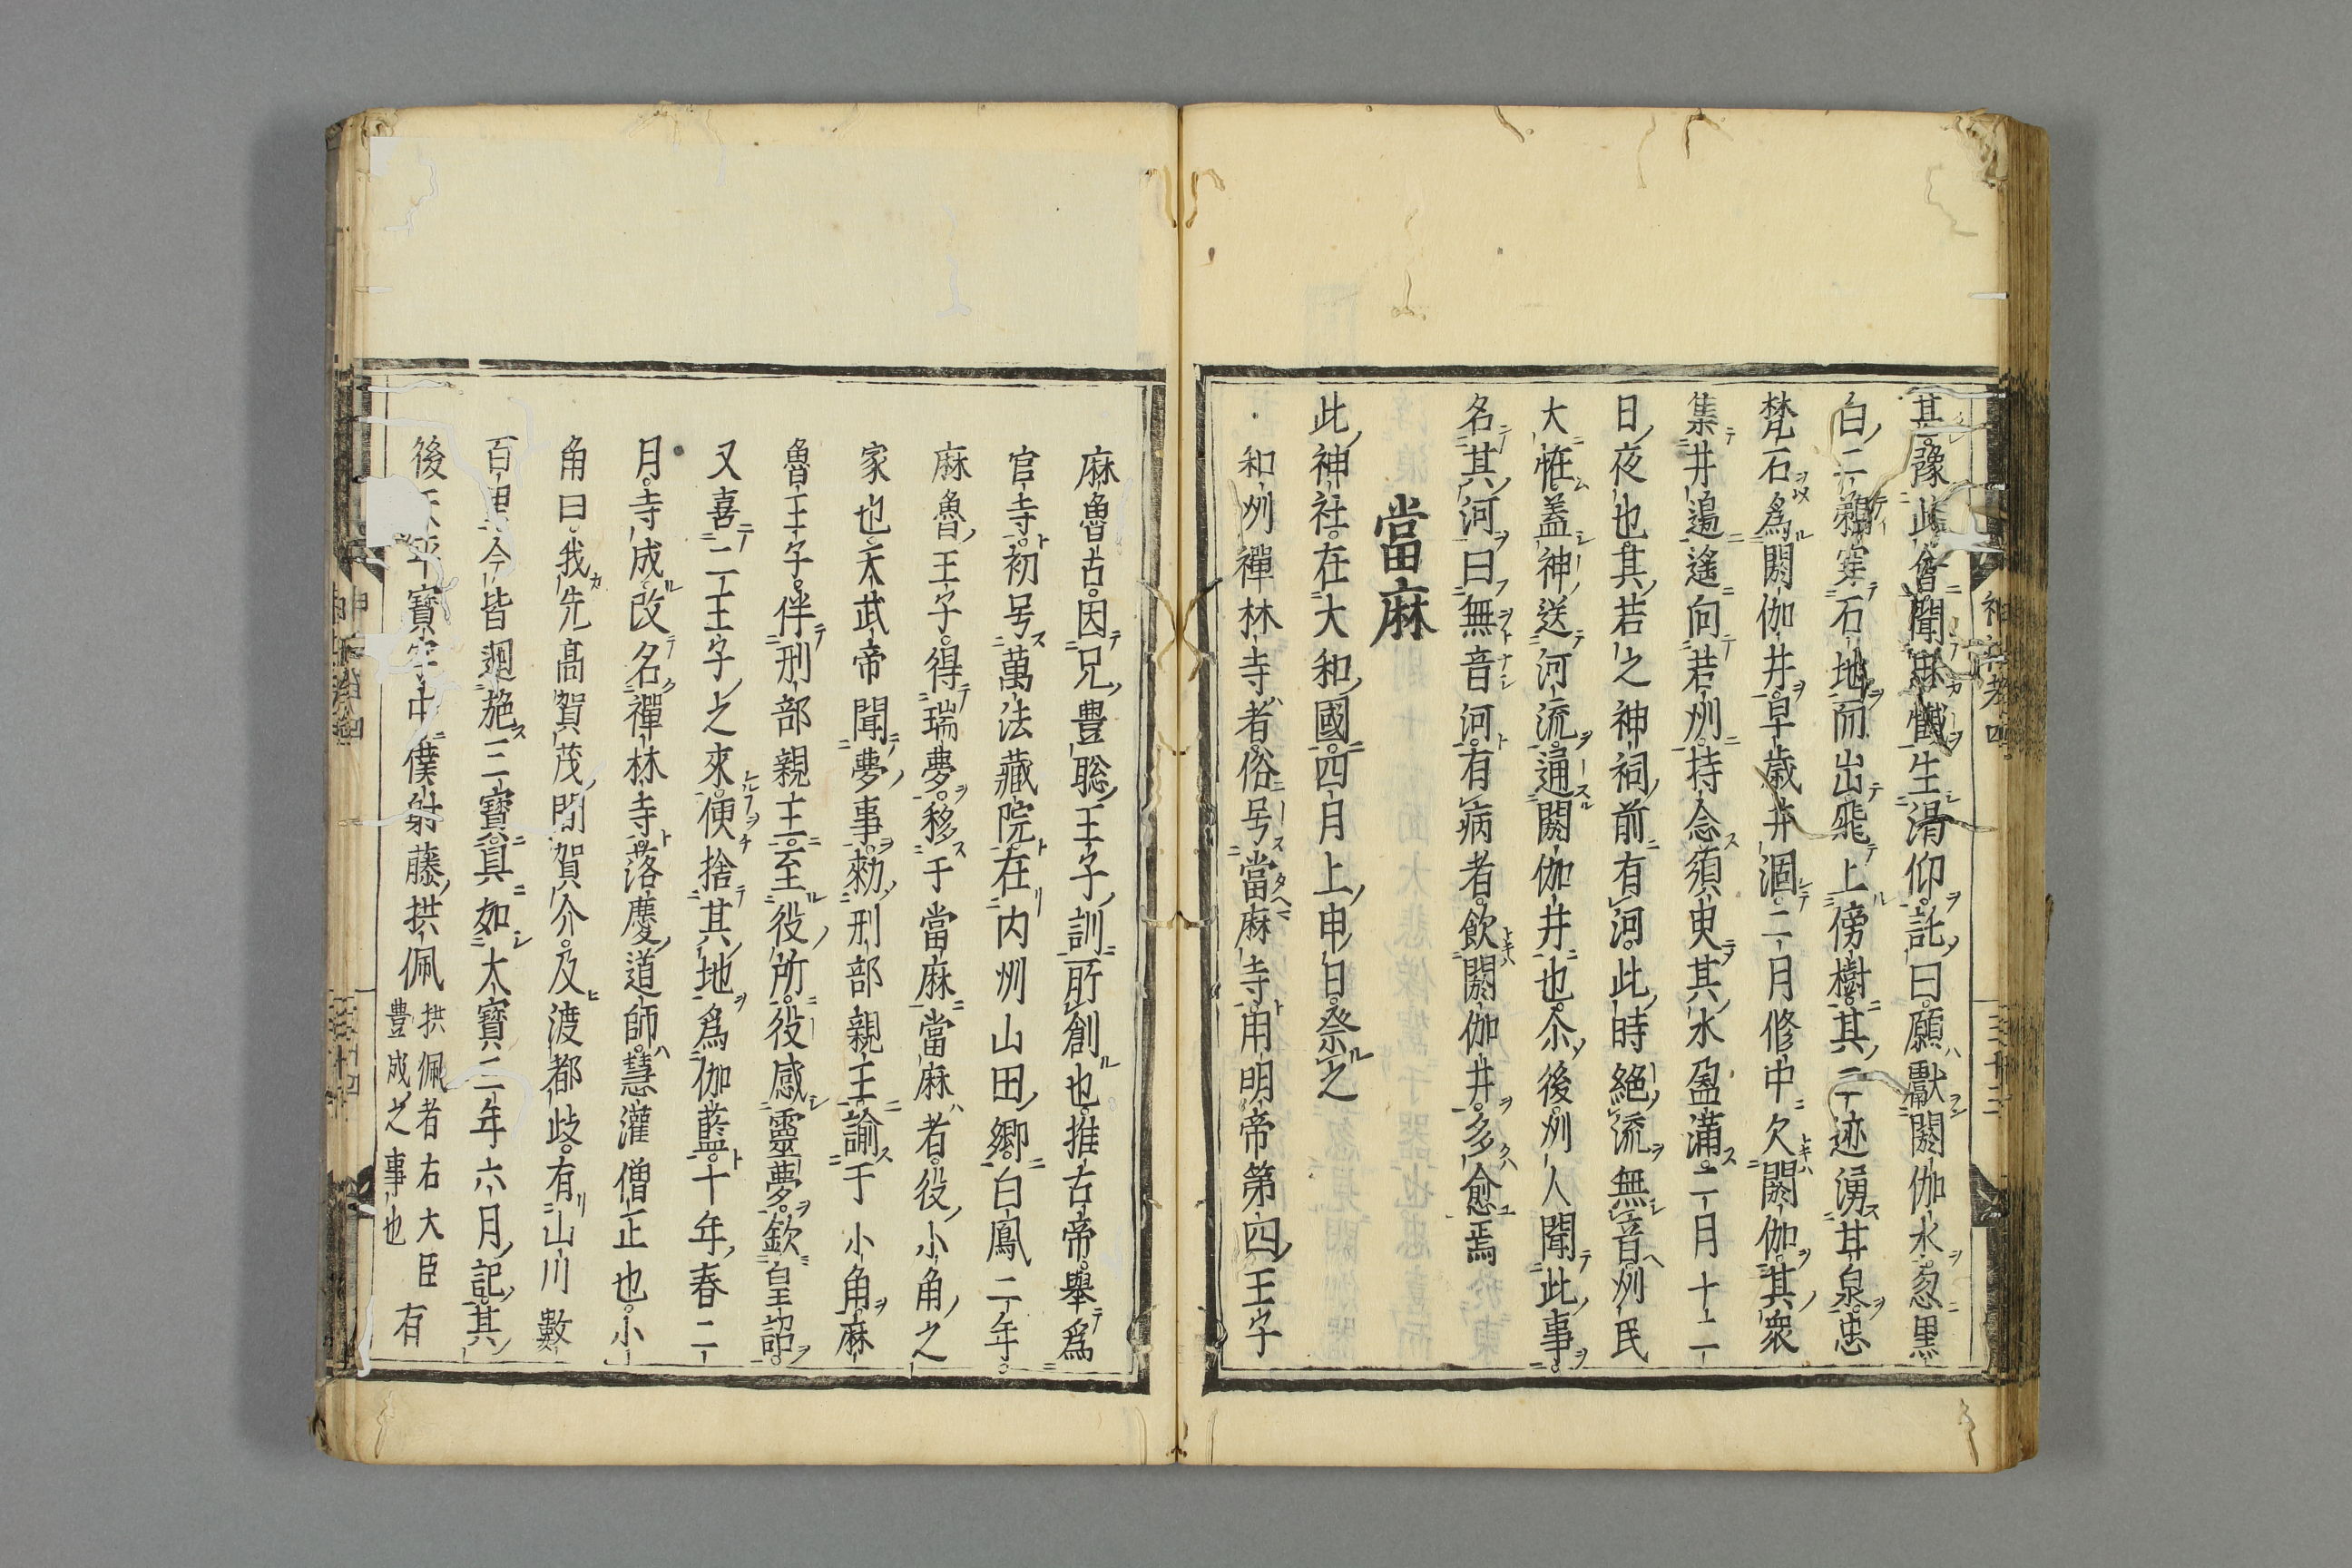 其豫此會聞忠懺生渇仰託曰願獻閼伽水忽黒
白二鵜穿石地而出飛上傍樹其二迹湧甘泉忠
梵石爲閼伽井早歳井涸二月修中欠閼伽其衆
集井邉遥向若州持念須臾其水盈滿二月十二
日夜也其若之神祠前有河此時絶流無音州民
大恠蓋神送河流通閼伽井也尒後州人聞此事
名其河曰無音河有病者飲閼伽井多愈焉
當麻
此神社在大和國四月上申日祭之
和州禪林寺者俗号當麻寺用明帝第四王子
神社考四
三十三
麻魯古因兄豊聡王子訓所創也推古帝舉爲
官寺初号萬法藏院在内州山田郷白鳳二年
麻魯王子得瑞夢移于當麻當麻者役小角之
家也天武帝聞夢事勑刑部親王諭于小角麻
魯王子伴刑部親王至役所役感靈夢欽皇詔
又喜二王子之來便捨其地爲伽藍十年春二
月寺成改名禪林寺落慶導師慧灌僧正也小
角曰我先高賀茂間賀介及渡都岐有山川數
百里今皆廻施三寶具如大寶二年六月記其
後天平寶字中僕射藤拱佩
拱佩者右大臣
豊成之事也
有